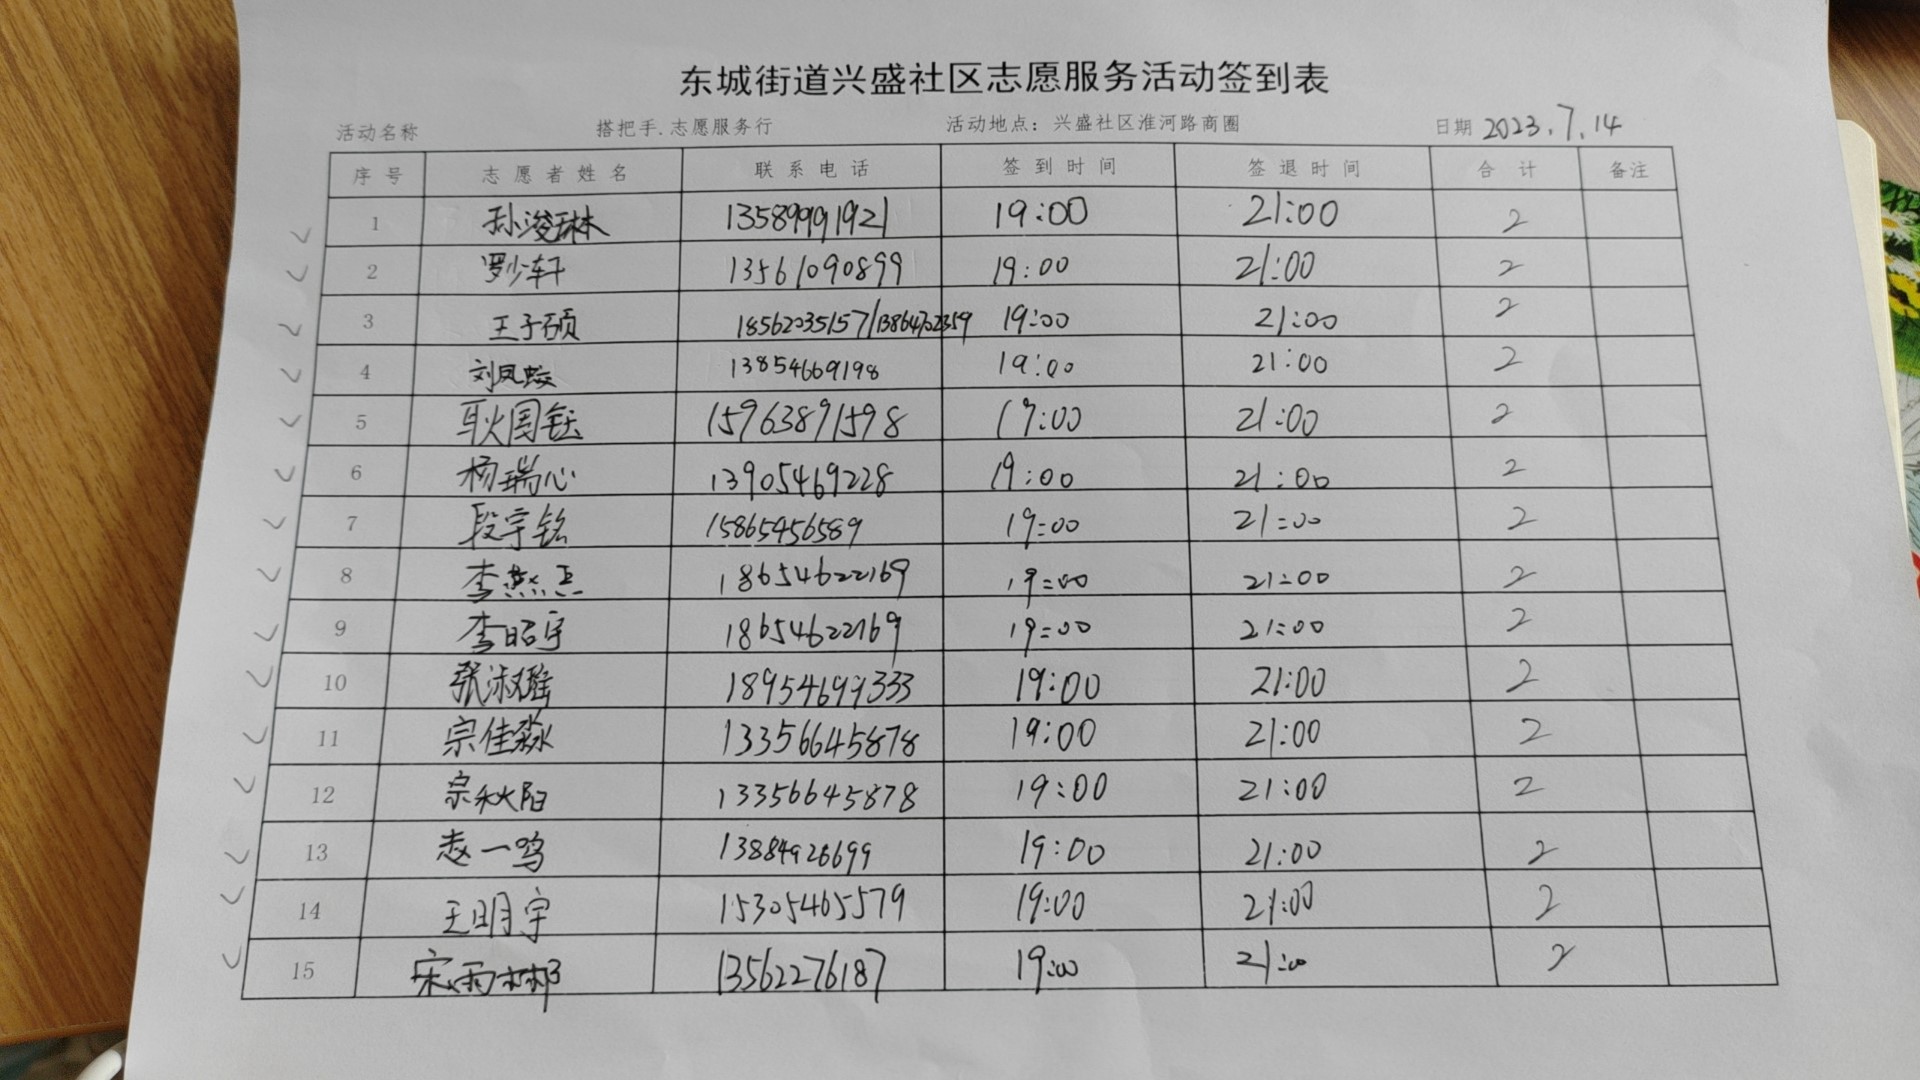 东城街道兴盛社区志愿服务活动签到表
活动名称 搭把手.志愿服务行 活动地点：兴盛社区淮河路商圈 日期 2023.7.14
序号 志愿者姓名 联系电话 签到时间 签退时间 合计 备注
1 孙浚琳 13589991921 19:00 21:00 2
2 罗少轩 13561090899 19:00 21:00 2
3 王子硕 18562035157/13864702359 19:00 21:00 2
4 刘凤蛟 13854669198 19:00 21:00 2
5 耿国钰 15963891598 19:00 21:00 2
6 杨瑞心 13905469228 19:00 21:00 2
7 段宇铭 15865456589 19:00 21:00 2
8 李燕正 18654622169 19:00 21:00 2
9 李昭宇 18654622169 19:00 21:00 2
10 张淑瑶 18954699333 19:00 21:00 2
11 宗佳淼 13356645878 19:00 21:00 2
12 宗秋阳 13356645878 19:00 21:00 2
13 赵一鸣 13884926699 19:00 21:00 2
14 王明宇 15305465579 19:00 21:00 2
15 宋雨 13562276187 19:00 21:00 2